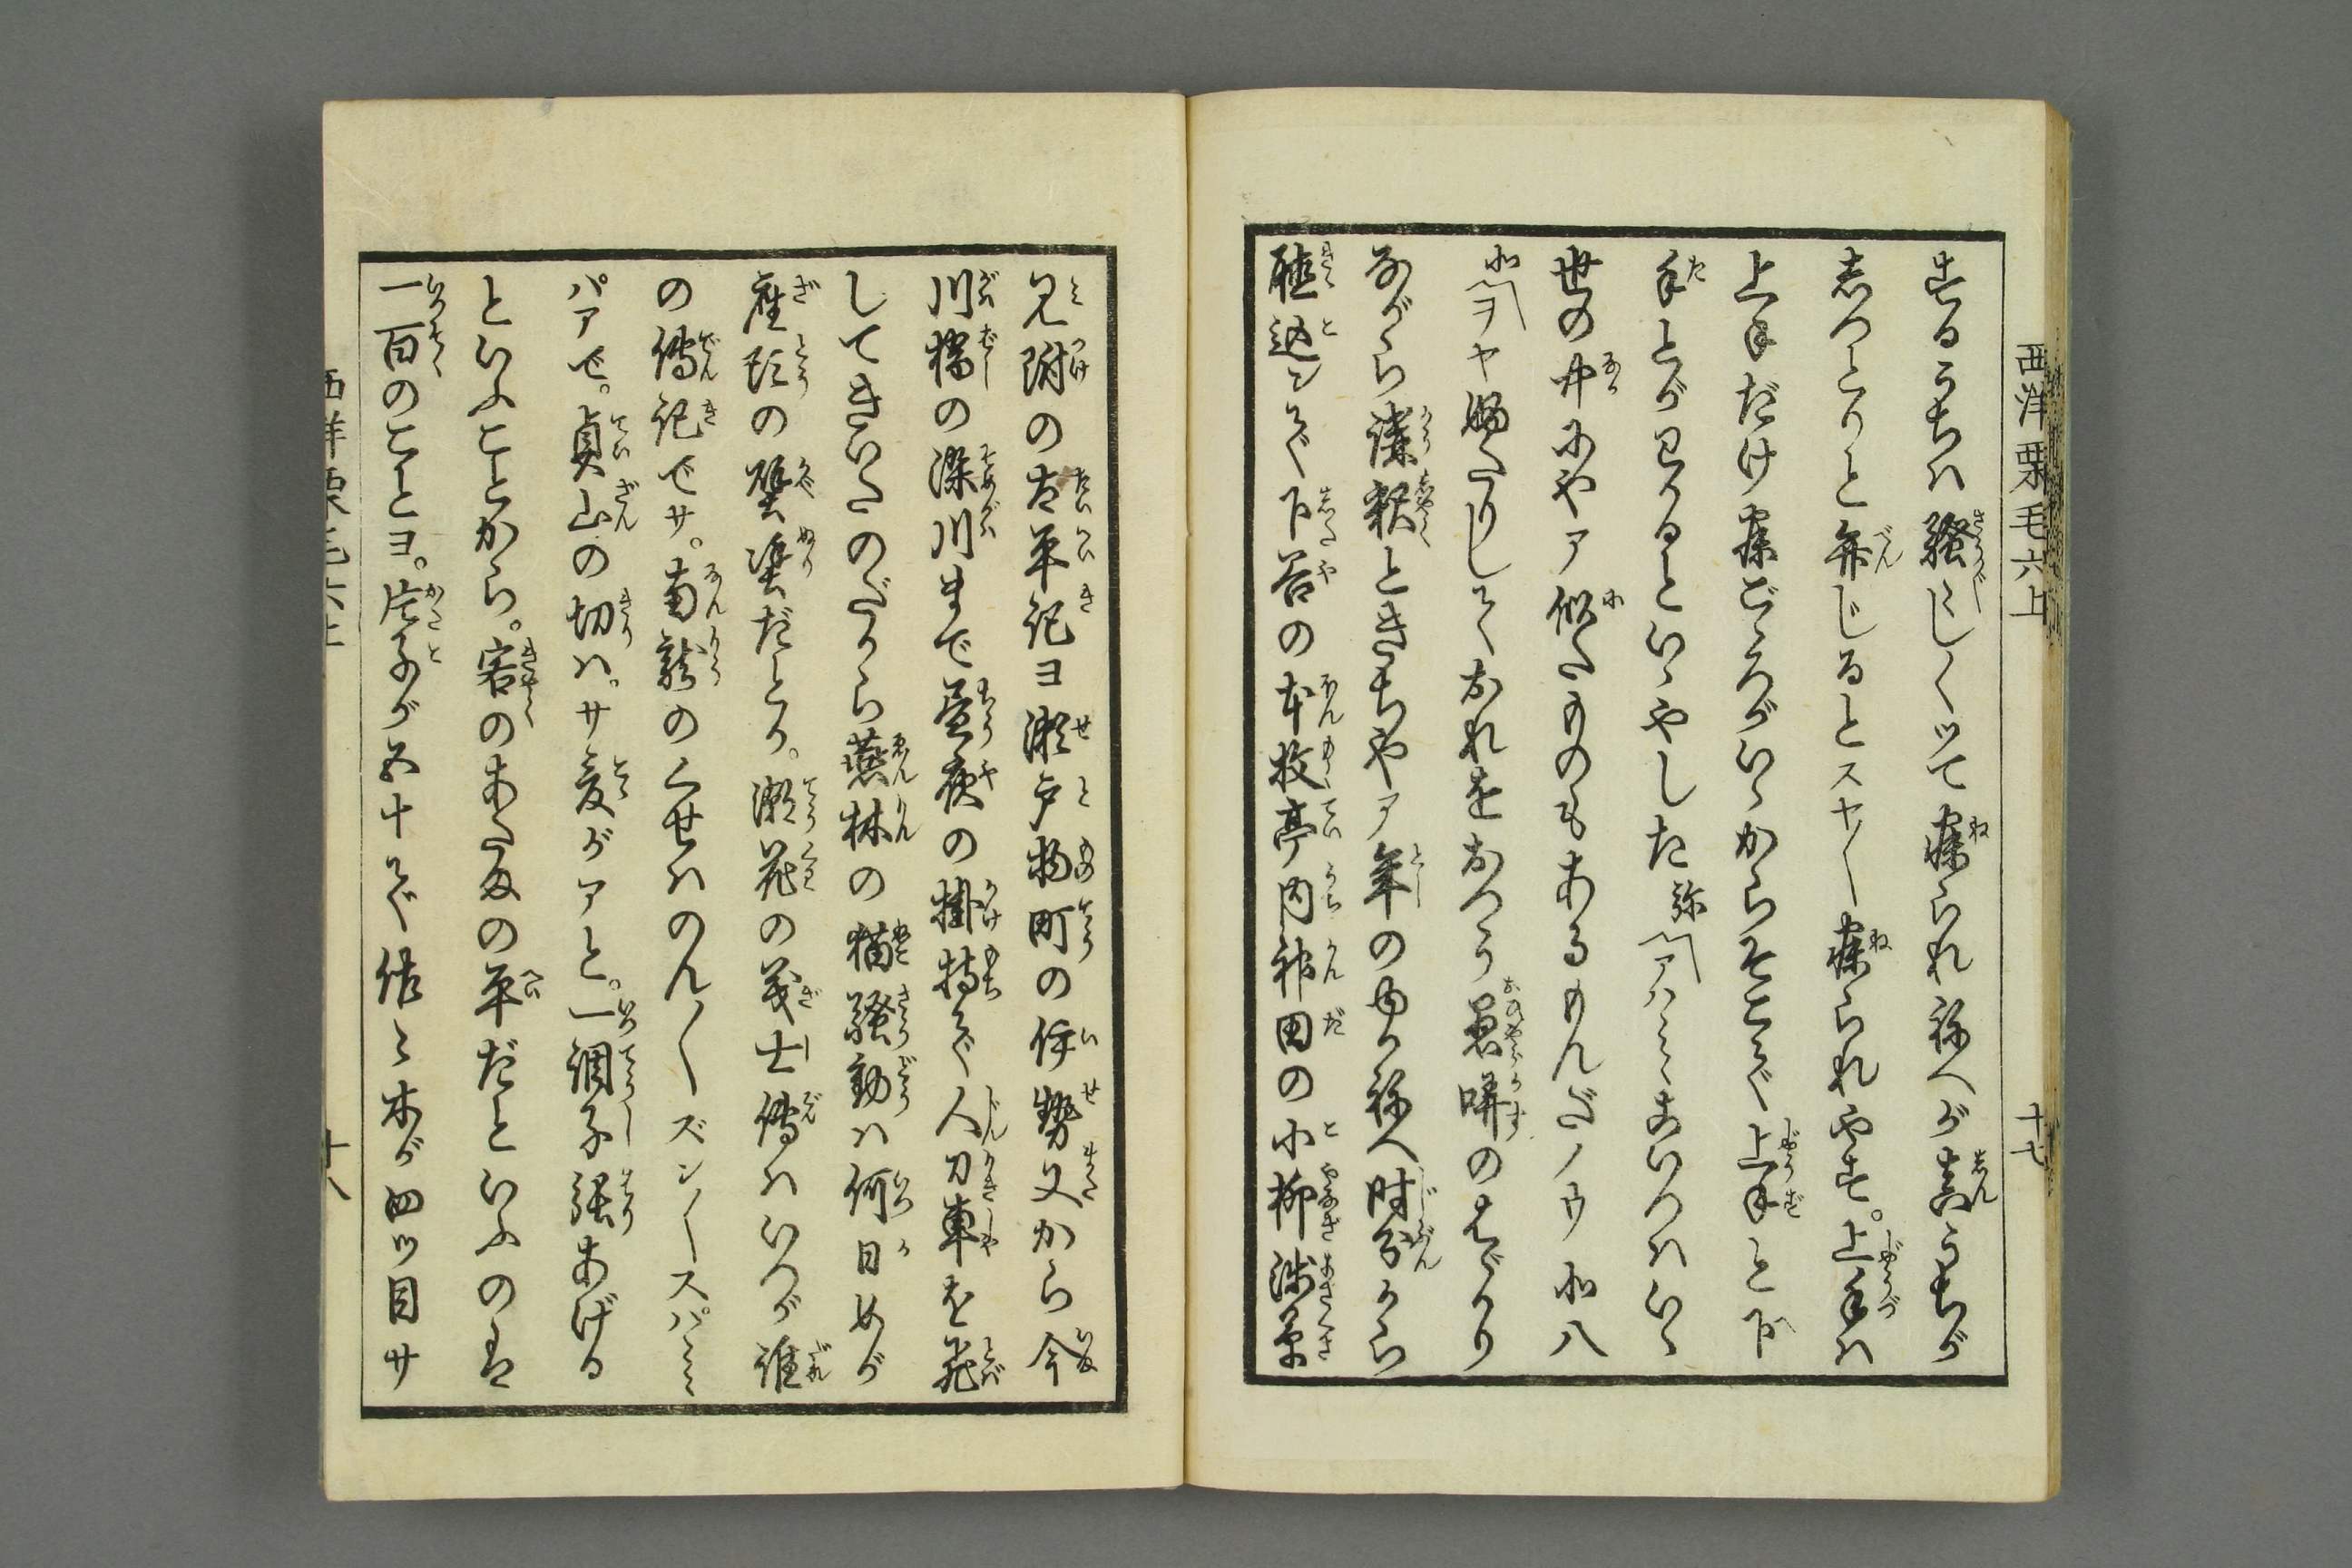 西洋栗毛六上 十七
するうちハ騒々しくッて寐られねへが真うちが
志つとりと弁じるとスヤ〳〵寐られやす。上手ハ
上手だけ寐ごゝろがいゝからそこで上手と下
手とがわかるといゝやした 弥「アハヽヽこいつハいゝ
世の中にやア似たものもあるもんだノウ北八
北「ヲヤ嬲たりしておれをおつう愚哢のだぜ
ながら講釈ときちやア年のゆかねへ時分から
聴込ンで下谷の本牧亭内神田の小柳浅草
見附の太平記ヨ瀬戸物町の伊勢又から今
川橋の染川まで昼夜の掛持で人力車を飛
してきいたのだから燕林の猫騒動ハ何日めが
座頭の壁塗だとか。潮花の義士傳ハいつが誰
の傳記でサ。南龍のくせハのん〳〵ズン〳〵スパヽヽ
パアで。貞山の切ハ。サ爰がアと。一調子張あげる
といふことから。客のあたまの平だといふのは
一百のことヨ。片子が五十で佐々木が四ッ目サ
西洋栗毛六上 十八